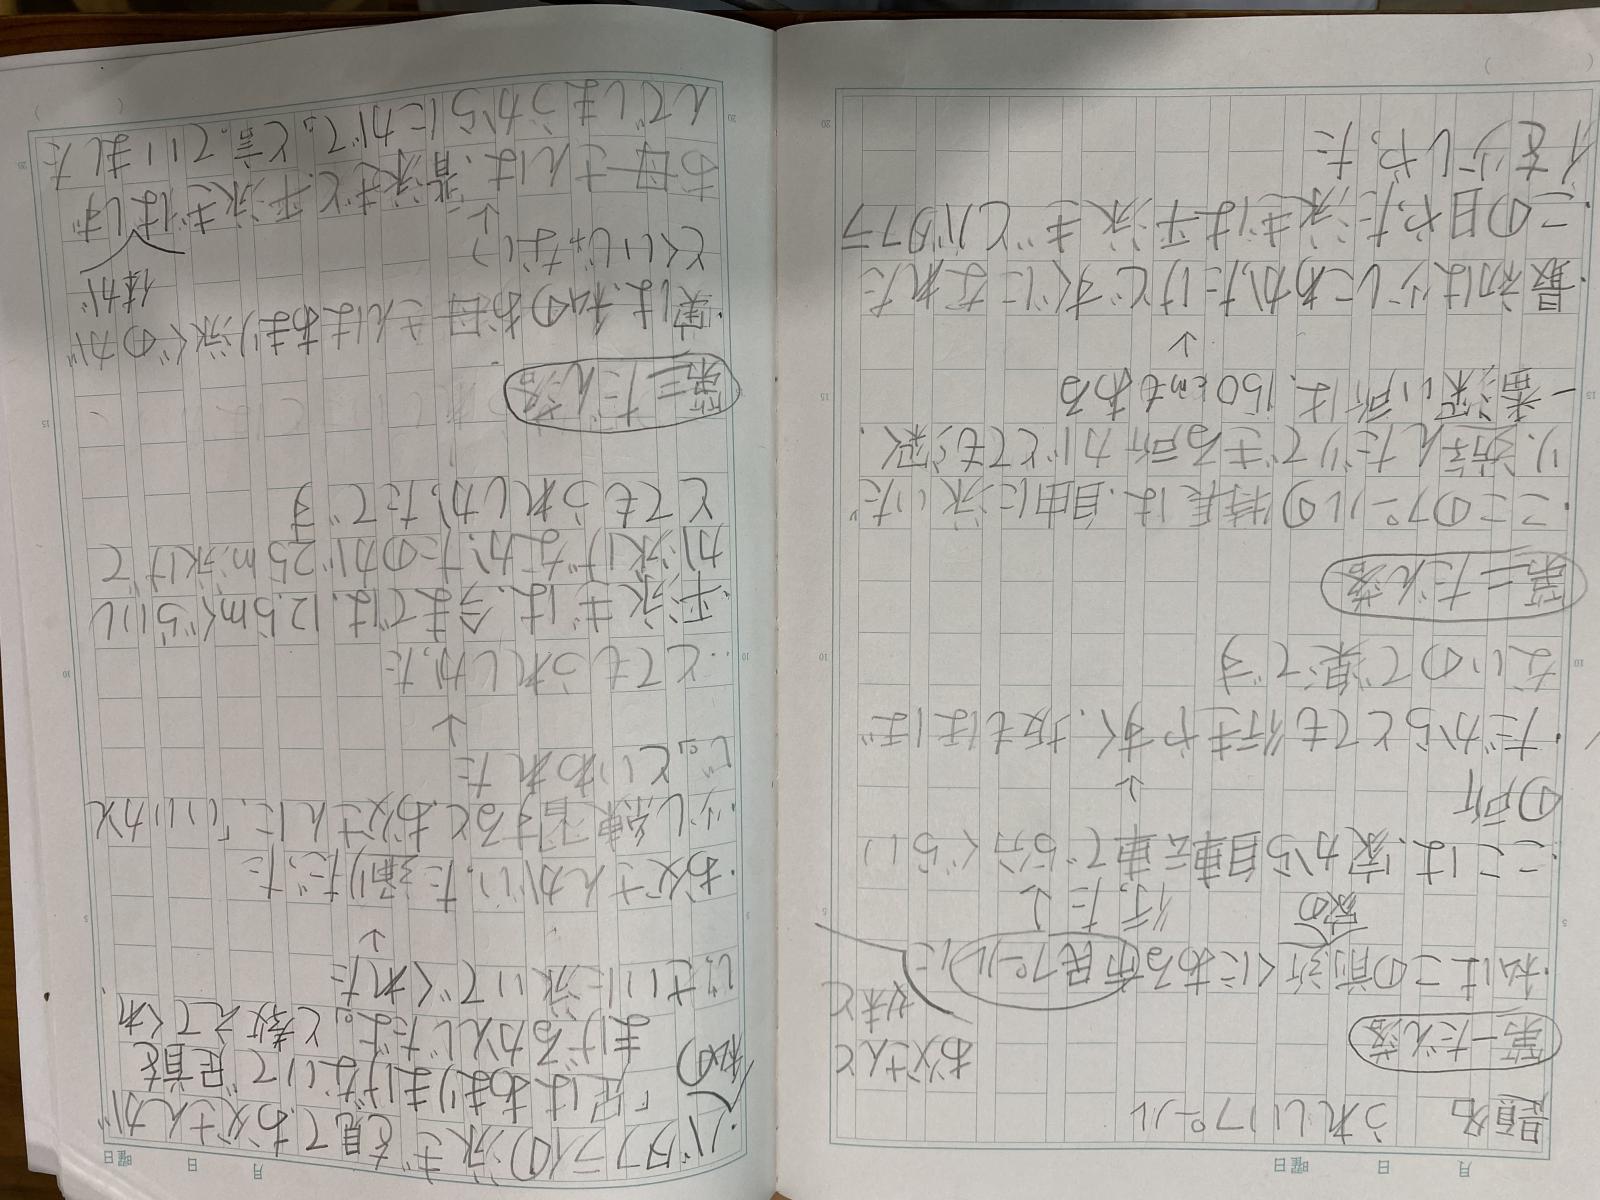 題名 うれしいプール
お父さんと
第一だん落
妹と
・私はこの前近くにある市民プールに
家の
行った↓
・ここは、家から自転車で5分ぐらい
の所 ↓
・だからとても行きやすく、坂もほぼ
ないので楽です
第二だん落
・ここのプールの特長は、自由に泳いだ
り、遊んだりできる所がとても深く、
一番深い所は、150cmもある
↓
・最初は少しこわかったけどすぐになれた
・この日やった泳ぎは平泳ぎとバタフラ
イを少しやった
・バタフライの泳ぎを見てお父さんが
私の
「足はあまりまげないで足首を
まげるかんじだよ。」と教えてくれ
じっさいに泳いでくれた
↓
・お父さんがいった通りだった
・少し練習するとお父さんに、「いいかん
じ。」といわれた
↓
・とてもうれしかった
・平泳ぎは、今までは、12.5mぐらいし
か泳げなかったのが25m泳げて
とてもうれしかったです
第三だん落
・実は、私のお母さんはあまり泳ぐのが
とくいじゃない
↓
体が
お母さんは、「背泳ぎと、平泳ぎはしず
んでしまうからにがて。」と言っていました